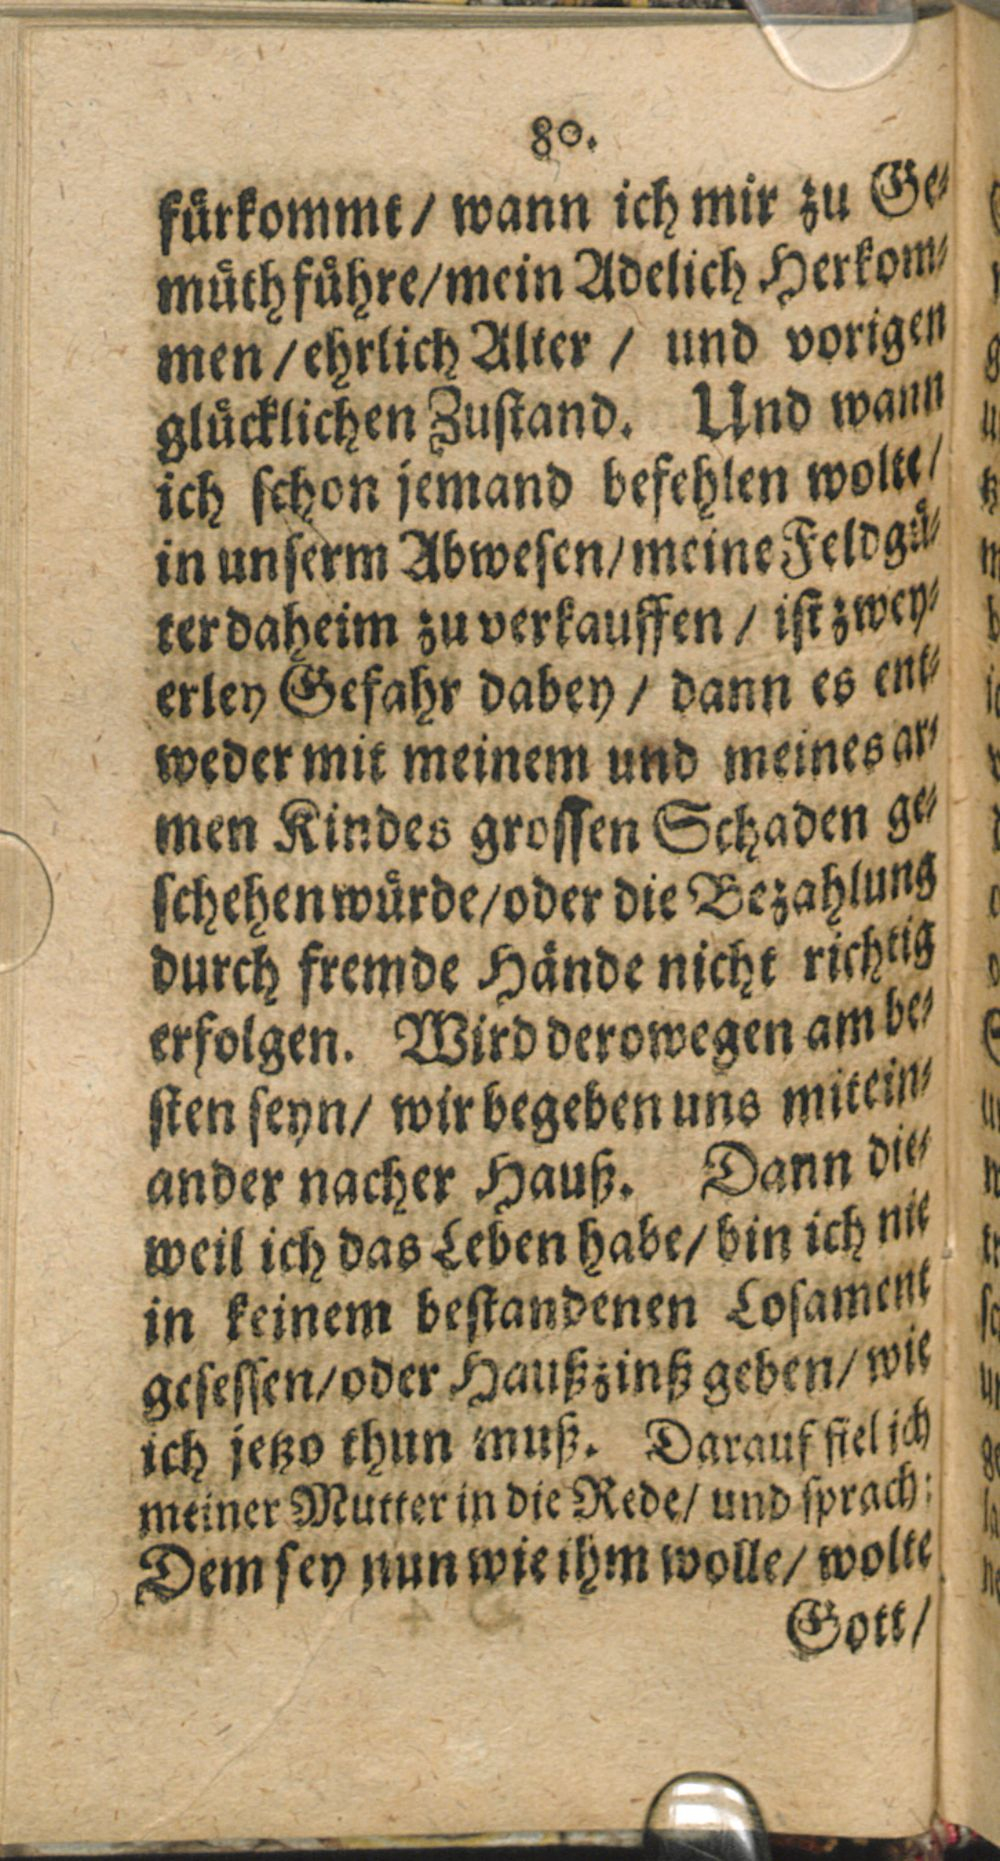 80.
fürkommt/ wann ich mir zu Ge-
müth führe/mein Adelich Herkom-
men/ehrlich Alter / und vorigen
glücklichen Zustand. Und wann
ich schon jemand befehlen wolte/
in unserm Abwesen/meine Feldgü-
ter daheim zu verkauffen / ist zwey-
erley Gefahr dabey / dann es ent-
weder mit meinem und meines ar-
men Kindes grossen Schaden ge-
schehen würde/oder die Bezahlung
durch fremde Hände nicht richtig
erfolgen. Wird derowegen am be-
sten seyn/ wir begeben uns mitein-
ander nacher Hauß. Dann die-
weil ich das Leben habe/ bin ich nie
in keinem bestandenen Losament
gesessen/oder Haußzinß geben/ wie
ich jetzo thun muß. Darauf fiel ich
meiner Mutter in die Rede/ und sprach:
Dem sey nun wie ihm wolle/ wolte
Gott/